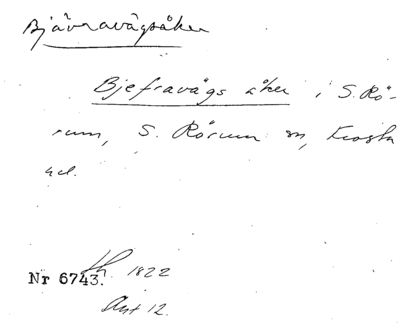 Bjävravägsåker
Bjefravägs åker i S. Rö-
rum, S. Rörum sn, Frosta
hd.
Nr 6743. Lh. 1822
Akt 12.